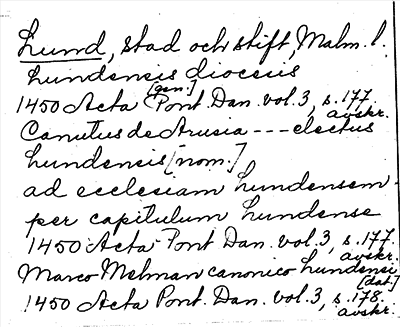 Lund, stad och stift, Malm. l.
Lundensis diocesis
[gen.]
1450 Acta Pont. Dan. vol. 3, s. 177
avskr.
Canutus de Arusia --- electus
Lundensis [nom.]
ad ecclesiam Lundensem -
per capitulum Lundense
1450 Acta Pont. Dan. vol. 3, s. 177.
avskr.
Marco Melman canonico Lundensi
[dat.]
1450 Acta Pont. Dan. vol. 3, s. 178.
avskr.